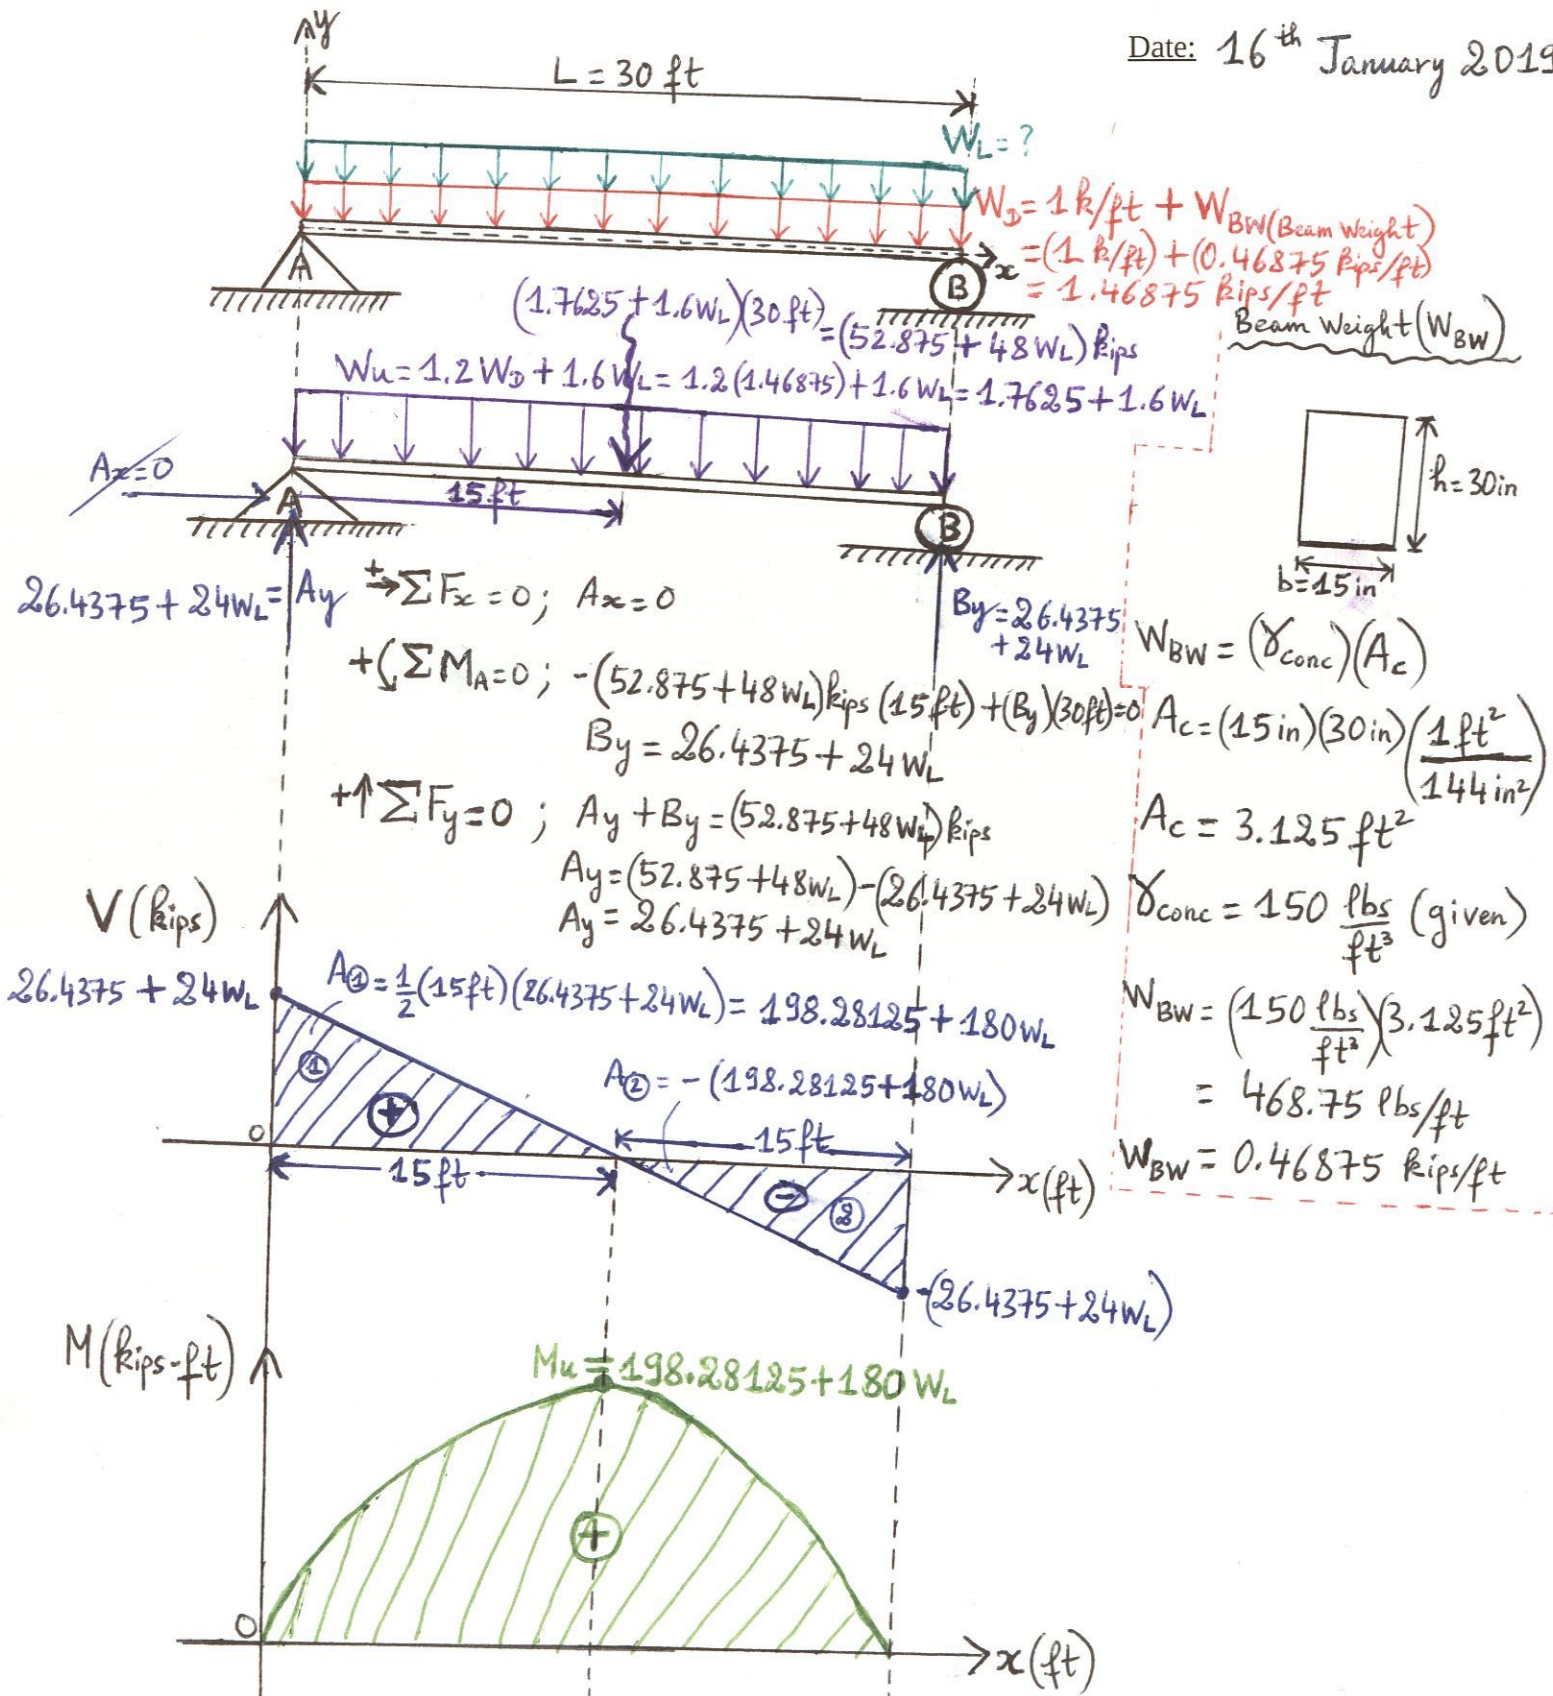 y
Date: 16th January 2019
L = 30 ft
WL = ?
WD = 1 k/ft + WBW(Beam Weight)
= (1 k/ft) + (0.46875 kips/ft)
= 1.46875 kips/ft
A
B
x
Beam Weight (WBW)
(1.7625 + 1.6WL)(30 ft) = (52.875 + 48 WL) kips
Wu = 1.2 WD + 1.6 WL = 1.2 (1.46875) + 1.6 WL = 1.7625 + 1.6 WL
h = 30 in
b = 15 in
Ax = 0
15 ft
A
B
26.4375 + 24WL = Ay
By = 26.4375
+ 24WL
+→ ΣFx = 0 ; Ax = 0
+ ΣMA = 0 ; -(52.875 + 48WL) kips (15 ft) + (By)(30ft) = 0
By = 26.4375 + 24 WL
+↑ ΣFy = 0 ; Ay + By = (52.875 + 48WL) kips
Ay = (52.875 + 48WL) - (26.4375 + 24WL)
Ay = 26.4375 + 24WL
WBW = (γconc)(Ac)
Ac = (15 in)(30 in) (1 ft² / 144 in²)
Ac = 3.125 ft²
γconc = 150 lbs/ft³ (given)
WBW = (150 lbs/ft³)(3.125 ft²)
= 468.75 lbs/ft
WBW = 0.46875 kips/ft
V (kips)
26.4375 + 24WL
A① = ½ (15ft) (26.4375 + 24WL) = 198.28125 + 180WL
A② = - (198.28125 + 180WL)
①
+
0
15 ft
15 ft
-
②
x (ft)
-(26.4375 + 24WL)
M (kips-ft)
Mu = 198.28125 + 180 WL
+
0
x (ft)